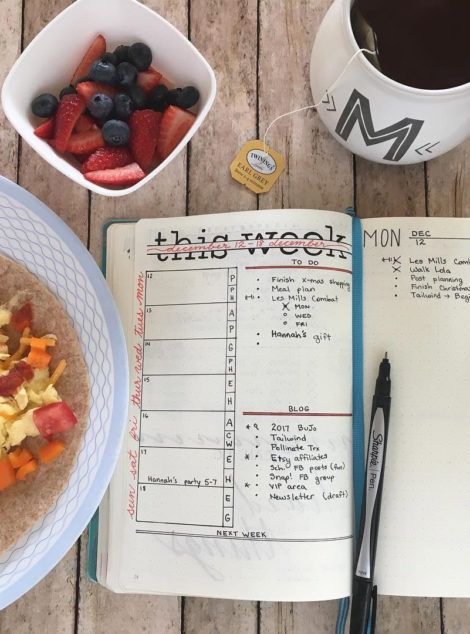 M
TWININGS
EARL GREY
this week
december 12 - 18 december
mon
tues
wed
thur
fri
sat
sun
12
13
14
15
16
17
18
Hannah's party 5-7
P
P
H
A
P
G
P
H
E
H
A
C
W
E
H
E
G
TO DO
Finish X-mas shopping
Meal plan
Les Mills Combat
MON
WED
FRI
Hannah's gift
BLOG
2017 BuJo
Tailwind
Pollinate Trx
Etsy affiliates
Sch. FB posts (fun)
Snap! FB group
VIP area
Newsletter (draft)
NEXT WEEK
MON DEC 12
Les Mills Comb
Walk Lola
Post planning
Finish Christmas
Tailwind → Beg
Sharpie Pen.